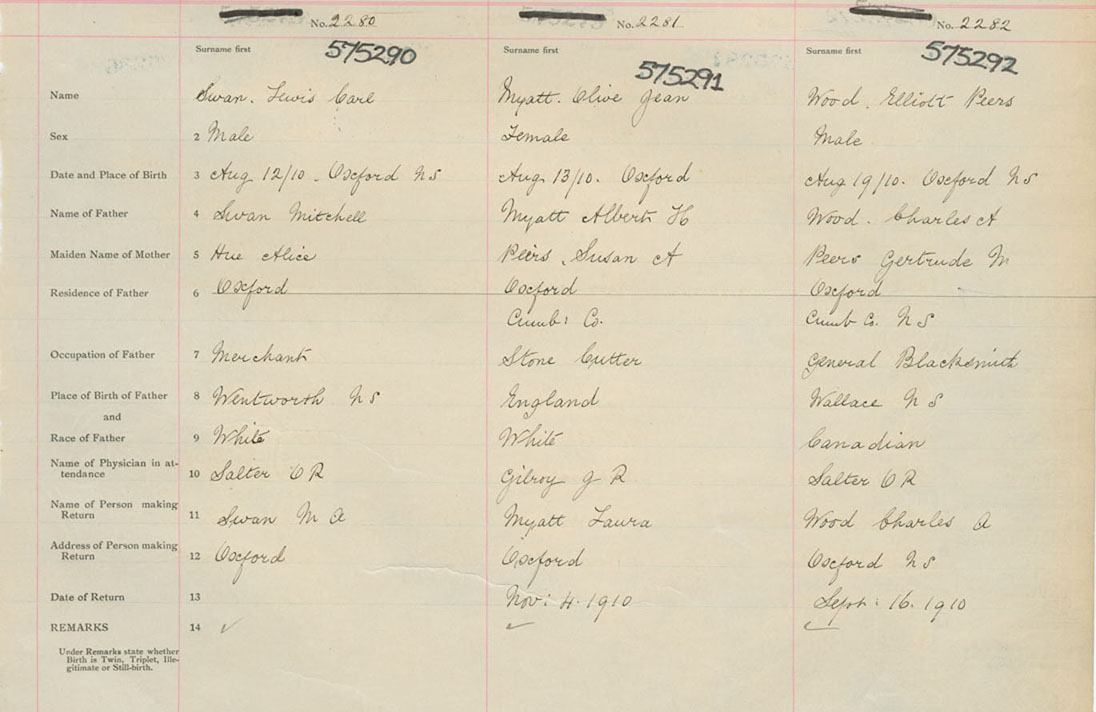 No. 2280 No. 2281 No. 2282
Surname first Surname first Surname first
575290 575291 575292
Name Swan. Lewis Carl Myatt. Olive Jean Wood. Elliott Peers
Sex 2 Male Female Male
Date and Place of Birth 3 Aug 12/10. Oxford NS Aug 13/10. Oxford Aug 19/10. Oxford NS
Name of Father 4 Swan Mitchell Myatt Albert H Wood. Charles A
Maiden Name of Mother 5 Hue Alice Peers. Susan A Peers Gertrude M
Residence of Father 6 Oxford Oxford Oxford
Cumb: Co. Cumb Co. NS
Occupation of Father 7 Merchant Stone Cutter General Blacksmith
Place of Birth of Father 8 Wentworth NS England Wallace NS
and
Race of Father 9 White White Canadian
Name of Physician in at-
tendance 10 Salter C R Gilroy J R Salter C R
Name of Person making
Return 11 Swan M A Myatt Laura Wood Charles A
Address of Person making
Return 12 Oxford Oxford Oxford NS
Date of Return 13 Nov: 4. 1910 Sept: 16. 1910
REMARKS 14 ✓ ✓ ✓
Under Remarks state whether
Birth is Twin, Triplet, Ille-
gitimate or Still-birth.